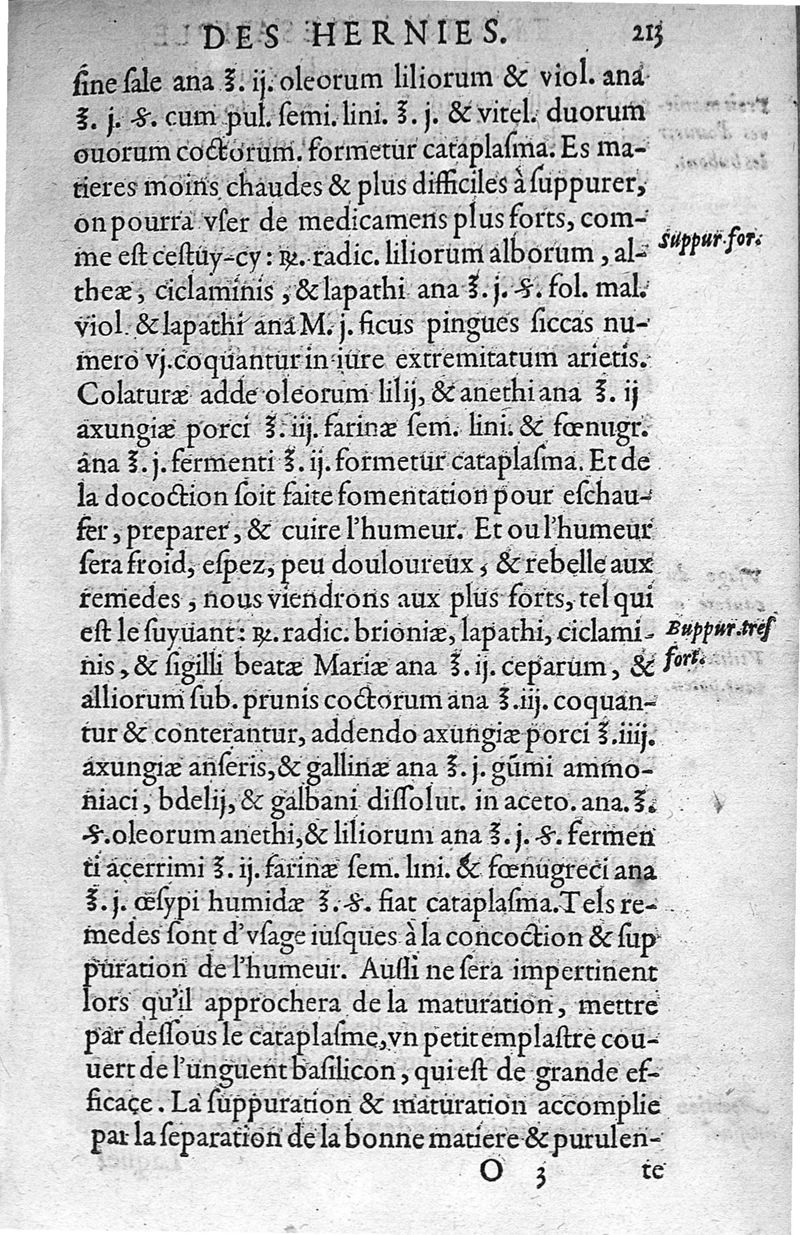 DES HERNIES. 213
ſine ſale ana ℥. ij. oleorum liliorum & viol. ana
℥. j. ß. cum pul. ſemi. lini. ℥. j. & vitel. duorum
ouorum coctorum. formetur cataplaſma. Es ma-
tieres moins chaudes & plus difficiles à ſuppurer,
on pourra vſer de medicamens plus forts, com-
me eſt ceſtuy-cy: ℞. radic. liliorum alborum, al-
Suppur. for.
theæ, ciclaminis, & lapathi ana ℥. j. ß. fol. mal.
viol. & lapathi ana M. j. ficus pingues ſiccas nu-
mero vj. coquantur in iure extremitatum arietis.
Colaturæ adde oleorum lilij, & anethi ana ℥. ij
axungiæ porci ℥. iij. farinæ ſem. lini. & fœnugr.
ana ℥. j. fermenti ℥. ij. formetur cataplaſma. Et de
la docoction ſoit faite fomentation pour eſchau-
fer, preparer, & cuire l'humeur. Et ou l'humeur
ſera froid, eſpez, peu douloureux, & rebelle aux
remedes, nous viendrons aux plus forts, tel qui
eſt le ſuyuant: ℞. radic. brioniæ, lapathi, ciclami-
Buppur. treſ
fort.
nis, & ſigilli beatæ Mariæ ana ℥. ij. ceparum, &
alliorum ſub. prunis coctorum ana ℥. iij. coquan-
tur & conterantur, addendo axungiæ porci ℥. iiij.
axungiæ anſeris, & gallinæ ana ℥. j. gūmi ammo-
niaci, bdelij, & galbani diſſolut. in aceto. ana. ℥.
ß. oleorum anethi, & liliorum ana ℥. j. ß. fermen
ti acerrimi ℥. ij. farinæ ſem. lini. & fœnugreci ana
℥. j. œſypi humidæ ℥. ß. fiat cataplaſma. Tels re-
medes ſont d'vſage iuſques à la concoction & ſup
puration de l'humeur. Auſſi ne ſera impertinent
lors qu'il approchera de la maturation, mettre
par deſſous le cataplaſme, vn petit emplaſtre cou-
uert de l'unguent baſilicon, qui eſt de grande ef-
ficace. La ſuppuration & maturation accomplie
par la ſeparation de la bonne matiere & purulen-
O 3 te